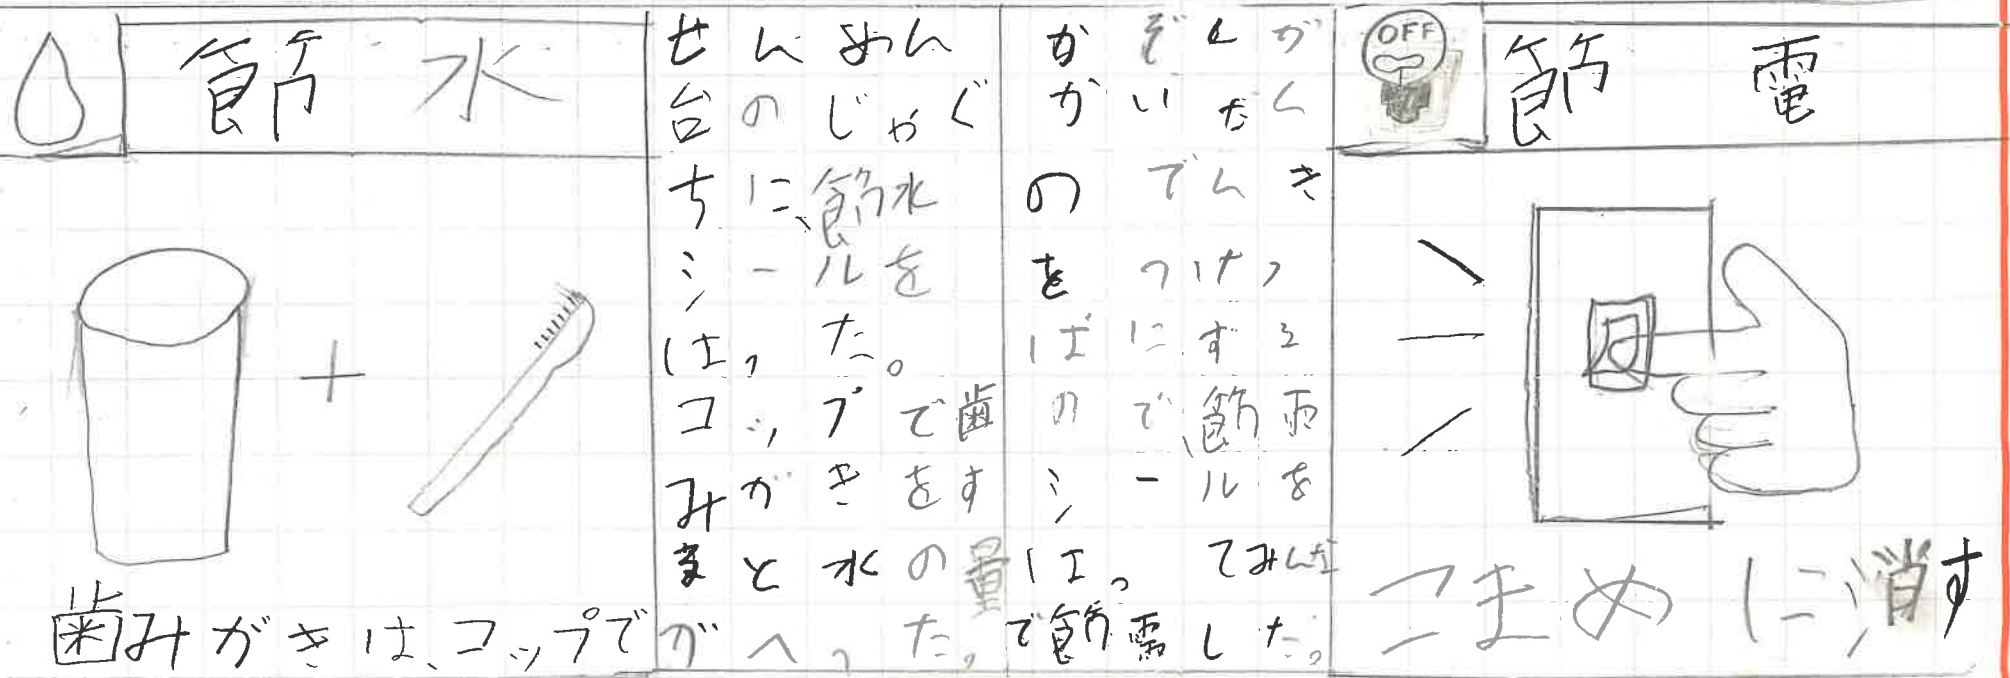 節水
歯みがきは、コップで
せんめん
台のじゃぐ
ちに、節水
シールを
はった。
コップで歯
みがきをす
ると水の量
がへった。
かぞくが
かいだん
のでんき
をつけっ
ぱにする
ので、節電
シールを
はってみんな
で節電した。
OFF
節電
こまめに消す